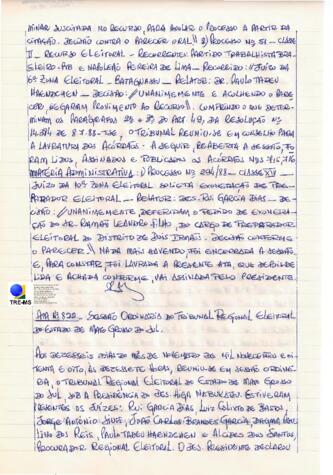 MINAR SUSCITADA NO RECURSO, PARA ANULAR O PROCESSO A PARTIR DA
CITAÇÃO. DECISÃO CONTRA O PARECER ORAL// 2) PROCESSO Nº 51 - CLASSE
II - RECURSO ELEITORAL - RECORRENTE: PARTIDO TRABALHISTA BRASI-
LEIRO-PTB E NABLEÃO PEREIRA DE LIMA - RECORRIDO: JUÍZO DA
6ª ZONA ELEITORAL - BATAGUASSU - RELATOR: DR. PAULO TADEU
HAENDCHEN - DECISÃO: //UNANIMEMENTE E ACOLHENDO O PARE-
CER, NEGARAM PROVIMENTO AO RECURSO//. CUMPRINDO O QUE DETER-
MINAM OS PARÁGRAFOS 2º E 3º DO ART 48, DA RESOLUÇÃO Nº
DE O TRIBUNAL REUNIU-SE EM CONSELHO PARA
A LAVRATURA DOS ACÓRDÃOS. A SEGUIR, REABERTA A SESSÃO, FO-
RAM LIDOS, ASSINADOS E PUBLICADOS OS ACÓRDÃOS NºS 715, 716
MATÉRIA ADMINISTRATIVA: 1) PROCESSO Nº 294/88 - CLASSE XV -
JUÍZO DA 10ª ZONA ELEITORAL SOLICITA EXONERAÇÃO DE PRE-
PARADOR ELEITORAL - RELATOR: DES. RUI GARCIA DIAS - DE-
CISÃO: //UNANIMEMENTE DEFERIRAM O PEDIDO DE EXONERA-
ÇÃO DO SR. RAMÃO LEANDRO FILHO, DO CARGO DE PREPARADOR
ELEITORAL DO DISTRITO DE DOIS IRMÃOS. DECISÃO CONFORME
O PARECER// NADA MAIS HAVENDO FOI ENCERRADA A SESSÃO
E, PARA CONSTAR, FOI LAVRADA A PRESENTE ATA, QUE DEPOIS DE
LIDA E ACHADA CONFORME, VAI ASSINADA PELO PRESIDENTE.
TRE-MS
ATA Nº 822 - SESSÃO ORDINÁRIA DO TRIBUNAL REGIONAL ELEITORAL
DO ESTADO DE MATO GROSSO DO SUL.
AOS DEZESSEIS DIAS DO MÊS DE NOVEMBRO DE MIL NOVECENTOS E OI-
TENTA E OITO, ÀS DEZESSETE HORAS, REUNIU-SE EM SESSÃO ORDINÁ-
RIA, O TRIBUNAL REGIONAL ELEITORAL DO ESTADO DE MATO GROSSO
DO SUL, SOB A PRESIDÊNCIA DO DES. HIGA NABUKATSU. ESTIVERAM
PRESENTES OS JUÍZES: RUI GARCIA DIAS, LUIS CALIXTO DE BASTOS,
JORGE ANTÔNIO SIUFI, JOÃO CARLOS BRANDES GARCIA, DAGMA PAU-
LINO DOS REIS, PAULO TADEU HAENDCHEN E ALCIDES DOS SANTOS,
PROCURADOR REGIONAL ELEITORAL. O DES. PRESIDENTE DECLAROU